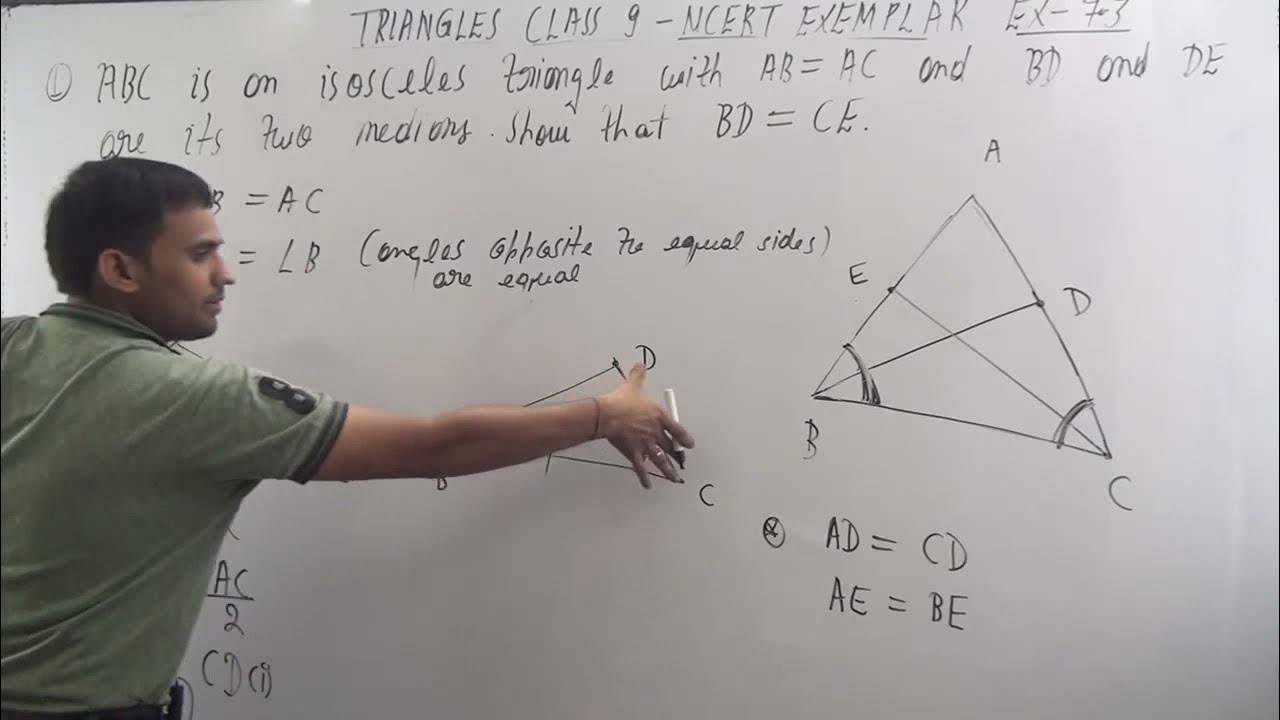 TRIANGLES CLASS 9 - NCERT EXEMPLAR EX-7.3
① ABC is on isosceles triangle with AB = AC and BD and DE
are its two medions. Show that BD = CE.
B = AC
= ∠B (ongles opposite to equal sides)
are equal
A
E
D
B
C
D
B
C
AC
2
CD (i)
⊛ AD = CD
AE = BE